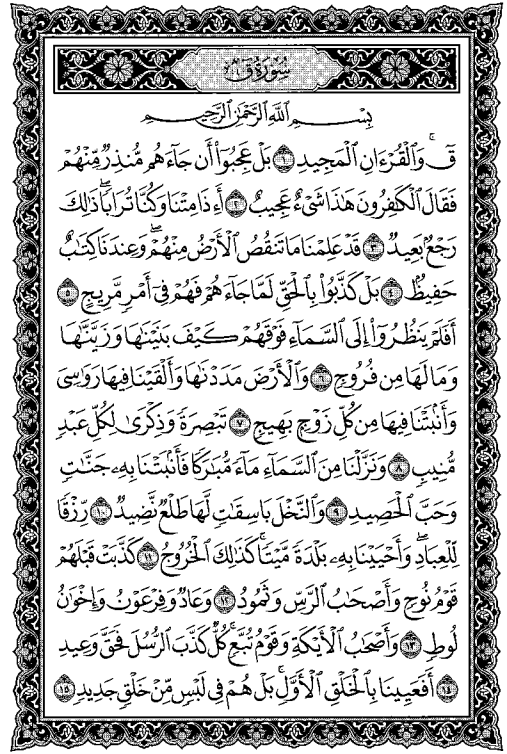 سُورَةُ ق
بِسْمِ اللَّهِ الرَّحْمَٰنِ الرَّحِيمِ
قٓ ۚ وَالْقُرْءَانِ الْمَجِيدِ ١ بَلْ عَجِبُوٓا۟ أَن جَآءَهُم مُّنذِرٌ مِّنْهُمْ
فَقَالَ الْكَٰفِرُونَ هَٰذَا شَىْءٌ عَجِيبٌ ٢ أَءِذَا مِتْنَا وَكُنَّا تُرَابًا ۖ ذَٰلِكَ
رَجْعٌۢ بَعِيدٌ ٣ قَدْ عَلِمْنَا مَا تَنقُصُ الْأَرْضُ مِنْهُمْ ۖ وَعِندَنَا كِتَٰبٌ
حَفِيظٌۢ ٤ بَلْ كَذَّبُوا۟ بِالْحَقِّ لَمَّا جَآءَهُمْ فَهُمْ فِىٓ أَمْرٍ مَّرِيجٍ ٥
أَفَلَمْ يَنظُرُوٓا۟ إِلَى السَّمَآءِ فَوْقَهُمْ كَيْفَ بَنَيْنَٰهَا وَزَيَّنَّٰهَا
وَمَا لَهَا مِن فُرُوجٍ ٦ وَالْأَرْضَ مَدَدْنَٰهَا وَأَلْقَيْنَا فِيهَا رَوَٰسِىَ
وَأَنۢبَتْنَا فِيهَا مِن كُلِّ زَوْجٍۭ بَهِيجٍ ٧ تَبْصِرَةً وَذِكْرَىٰ لِكُلِّ عَبْدٍ
مُّنِيبٍ ٨ وَنَزَّلْنَا مِنَ السَّمَآءِ مَآءً مُّبَٰرَكًا فَأَنۢبَتْنَا بِهِۦ جَنَّٰتٍ
وَحَبَّ الْحَصِيدِ ٩ وَالنَّخْلَ بَاسِقَٰتٍ لَّهَا طَلْعٌ نَّضِيدٌ ١٠ رِّزْقًا
لِّلْعِبَادِ ۖ وَأَحْيَيْنَا بِهِۦ بَلْدَةً مَّيْتًا ۚ كَذَٰلِكَ الْخُرُوجُ ١١ كَذَّبَتْ قَبْلَهُمْ
قَوْمُ نُوحٍ وَأَصْحَٰبُ الرَّسِّ وَثَمُودُ ١٢ وَعَادٌ وَفِرْعَوْنُ وَإِخْوَٰنُ
لُوطٍ ١٣ وَأَصْحَٰبُ الْأَيْكَةِ وَقَوْمُ تُبَّعٍ ۚ كُلٌّ كَذَّبَ الرُّسُلَ فَحَقَّ وَعِيدِ
١٤ أَفَعَيِينَا بِالْخَلْقِ الْأَوَّلِ ۚ بَلْ هُمْ فِى لَبْسٍ مِّنْ خَلْقٍ جَدِيدٍ ١٥